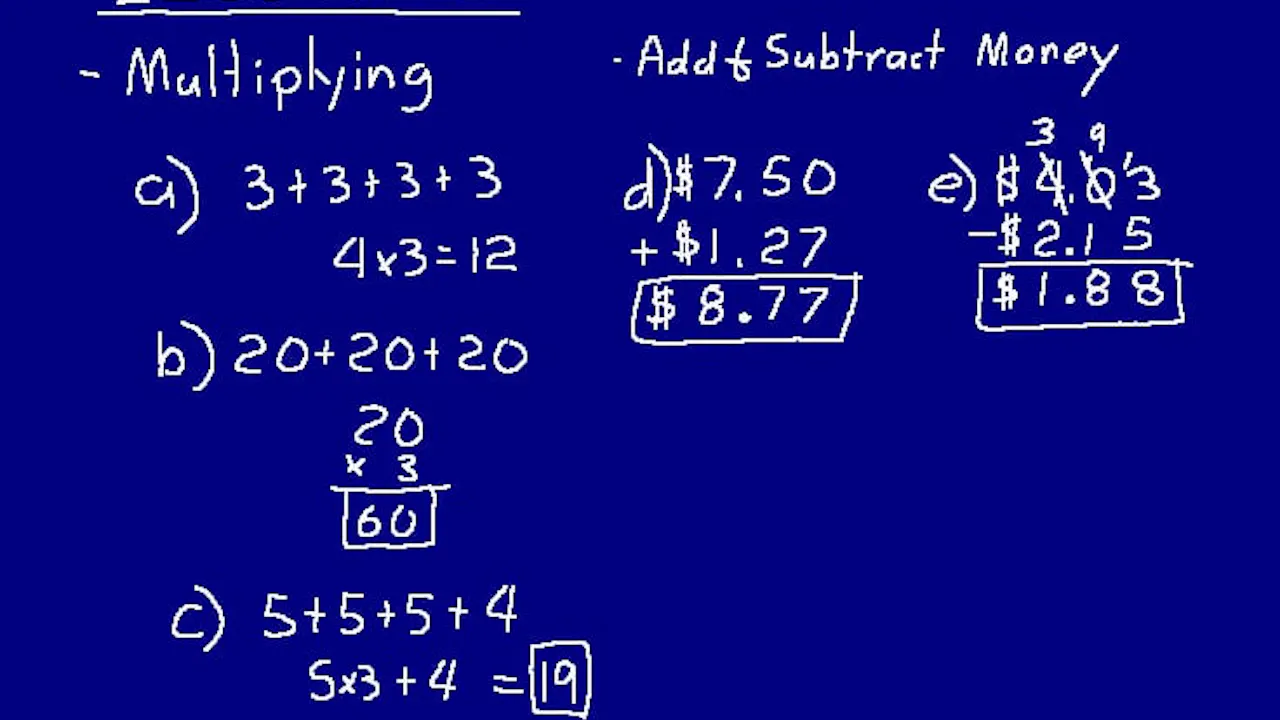 - Multiplying
a) 3 + 3 + 3 + 3
4 x 3 = 12
b) 20 + 20 + 20
20
x 3
60
c) 5 + 5 + 5 + 4
5 x 3 + 4 = 19
- Add & Subtract Money
d) $7.50
+ $1.27
$8.77
3 9
e) $4.0'3
- $2.15
$1.88